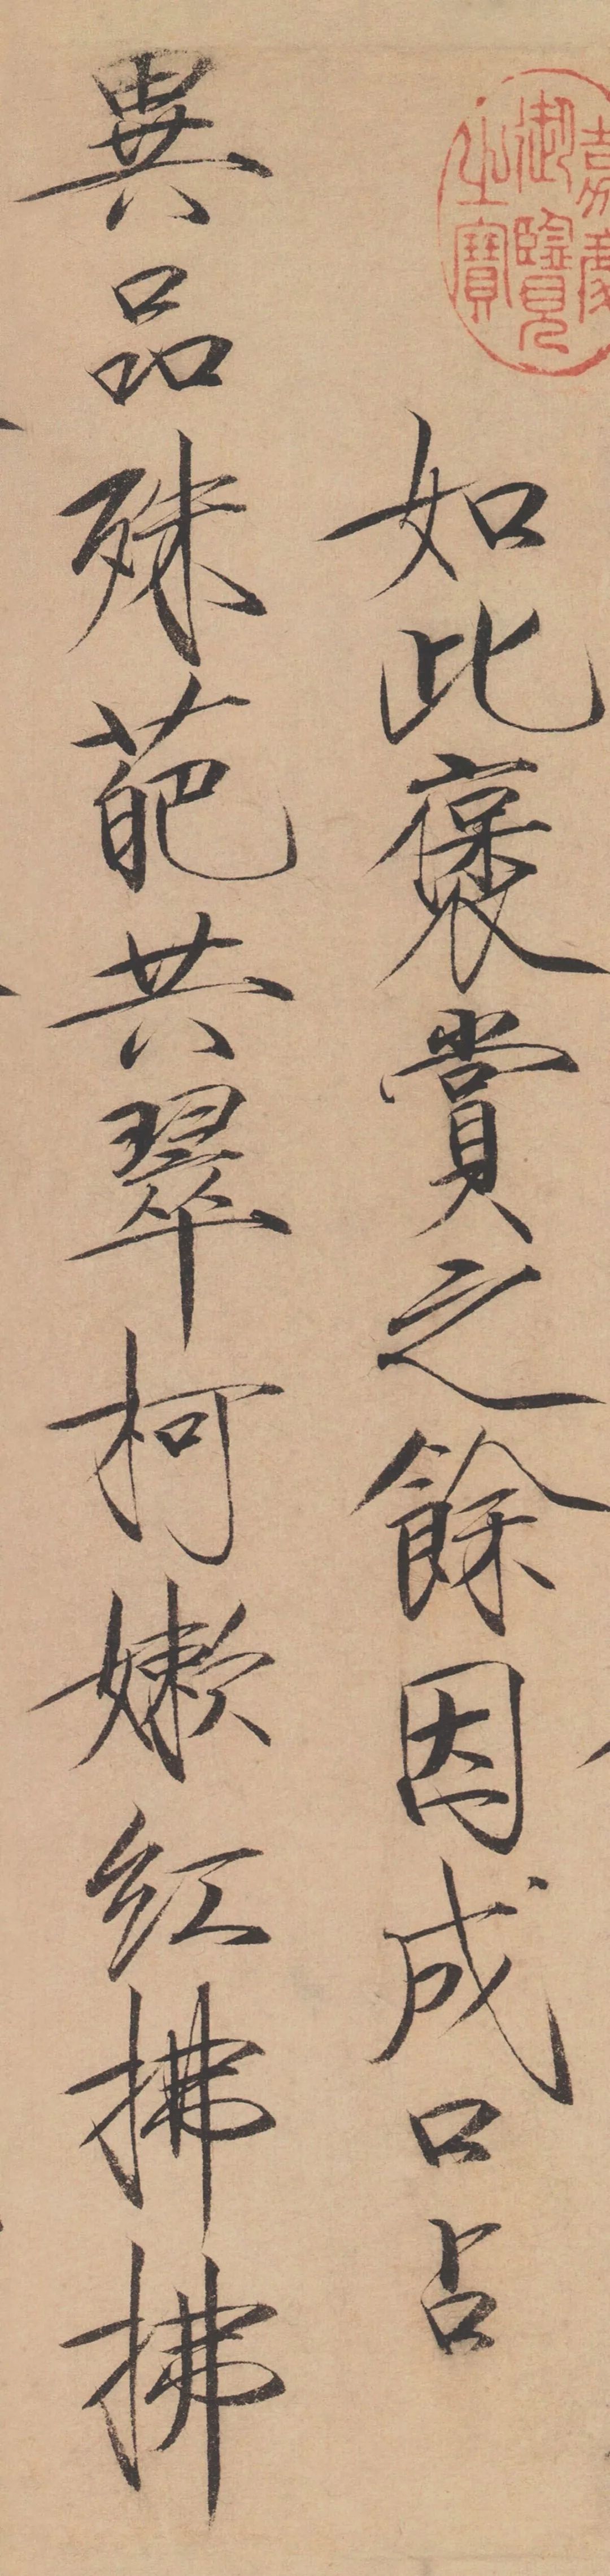 嘉慶
御覽
之寶
如此褒賞之餘因成口占
異品殊葩共翠柯嫩红拂拂